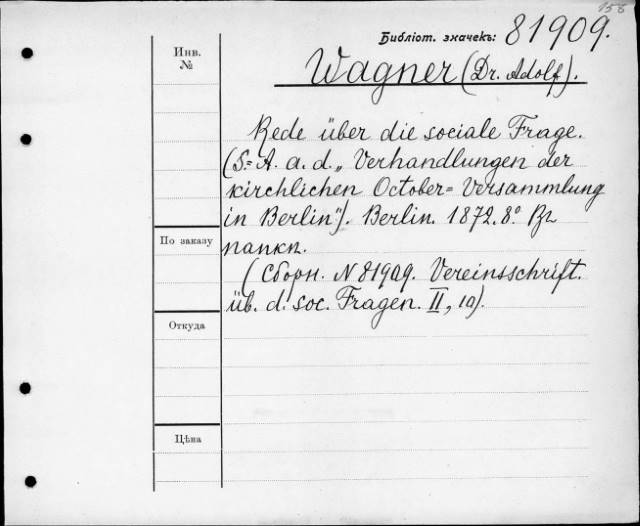 158
Библіот. значекъ: 81909.
Инв. №
Wagner (Dr. Adolf).
Rede über die sociale Frage.
(S.=A. a. d. „Verhandlungen der
kirchlichen October=Versammlung
in Berlin"). Berlin. 1872. 8° Въ
папкѣ.
(Сборн. N 81909. Vereinsschrift.
üb. d. soc. Fragen. II, 10).
По заказу
Откуда
Цѣна